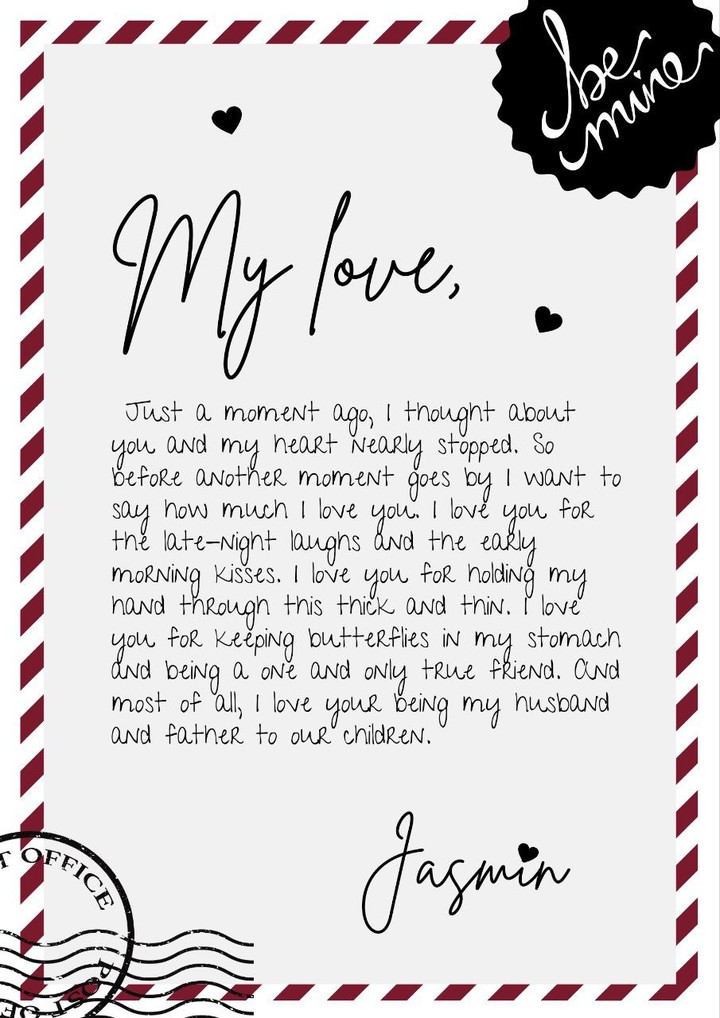 be
mine
My love,
Just a moment ago, I thought about
you and my heart nearly stopped. So
before another moment goes by I want to
say how much I love you. I love you for
the late-night laughs and the early
morning kisses. I love you for holding my
hand through this thick and thin. I love
you for keeping butterflies in my stomach
and being a one and only true friend. And
most of all, I love your being my husband
and father to our children.
Jasmin
T OFFICE
POST OF